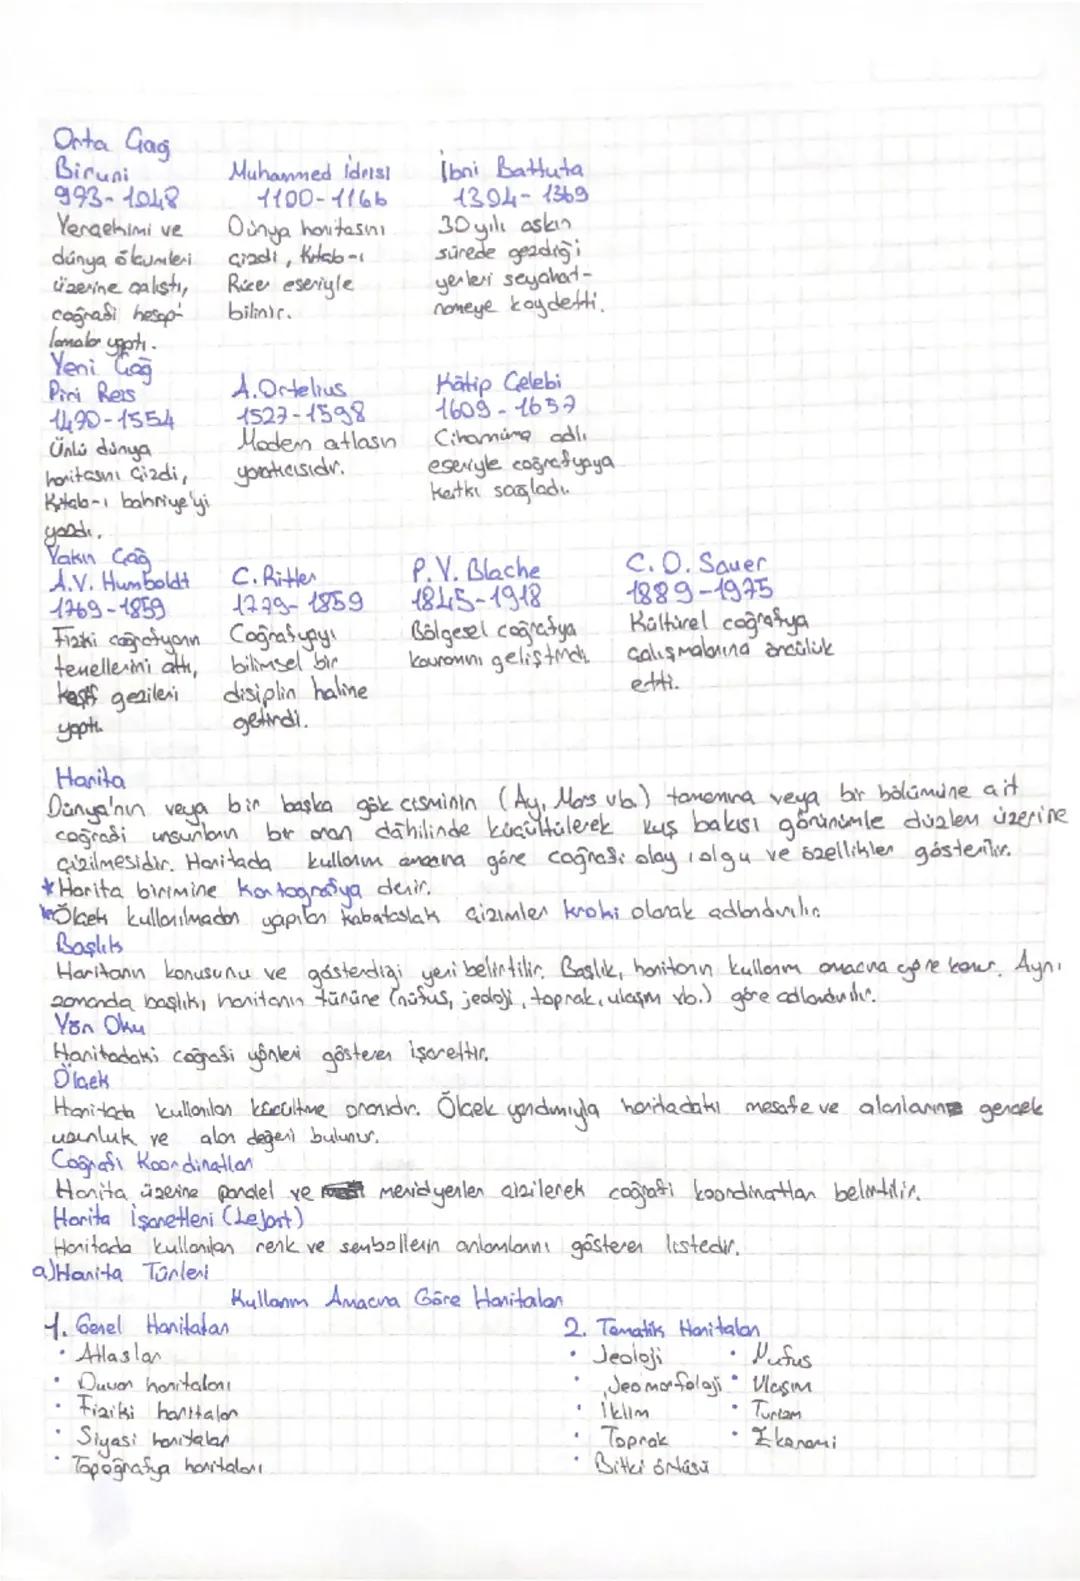 Orta Çağ
Biruni
993-1048
Yerçekimi ve
dünya ölçümleri
üzerine çalıştı,
coğrafi hesap-
lamalar yaptı.
Muhammed İdrisi
1100-1166
Dünya haritasını
çizdi, Kitab-ı
Rücer eseriyle
bilinir.
İbni Battuta
1304-1369
30 yılı aşkın
sürede gezdiği
yerleri seyahat-
nameye kaydetti.
Yeni Çağ
Piri Reis
1470-1554
Ünlü dünya
haritasını çizdi,
Kitab-ı bahriye'yi
yazdı.
A.Ortelius
1527-1598
Modern atlasın
yaratıcısıdır.
Kâtip Çelebi
1609-1657
Cihannüma adlı
eseriyle coğrafyaya
katkı sağladı.
Yakın Çağ
A.V. Humboldt
1769-1859
Fiziki coğrafyanın
temellerini attı,
keşif gezileri
yaptı.
C. Ritter
1779-1859
Coğrafyayı
bilimsel bir
disiplin haline
getirdi.
P.V. Blache
1845-1918
Bölgesel coğrafya
kavramını geliştirdi.
C.O. Sauer
1889-1975
Kültürel coğrafya
çalışmalarına öncülük
etti.
Harita
Dünya'nın veya bir başka gök cisminin (Ay, Mars vb.) tamamına veya bir bölümüne ait
coğrafi unsurların bir oran dâhilinde küçültülerek kuş bakışı görünümle düzlem üzerine
çizilmesidir. Haritada kullanım amacına göre coğrafi olay, olgu ve özellikler gösterilir.
*Harita birimine kartografya denir.
*Ölçek kullanılmadan yapılan kabataslak çizimler kroki olarak adlandırılır.
Başlık
Haritanın konusunu ve gösterdiği yeri belirtilir. Başlık, haritanın kullanım amacına göre konur. Aynı
zamanda başlık, haritanın türüne (nüfus, jeoloji, toprak, ulaşım vb.) göre adlandırılır.
Yön Oku
Haritadaki coğrafi yönleri gösteren işarettir.
Ölçek
Haritada kullanılan küçültme oranıdır. Ölçek yardımıyla haritadaki mesafe ve alanların gerçek
uzunluk ve alan değeri bulunur.
Coğrafi Koordinatlar
Harita üzerine paralel ve meridyenler çizilerek coğrafi koordinatları belirtilir.
Harita İşaretleri (Lejart)
Haritada kullanılan renk ve sembollerin anlamlarını gösteren listedir.
a)Harita Türleri
Kullanım Amacına Göre Haritalar
1. Genel Haritalar
• Atlaslar
• Duvar haritaları
• Fiziki haritalar
• Siyasi haritalar
• Topoğrafya haritaları
2. Tematik Haritalar
• Jeoloji
• Jeomorfoloji
• İklim
• Toprak
• Bitki örtüsü
• Nufus
• Ulaşım
• Turizm
• Ekonomi